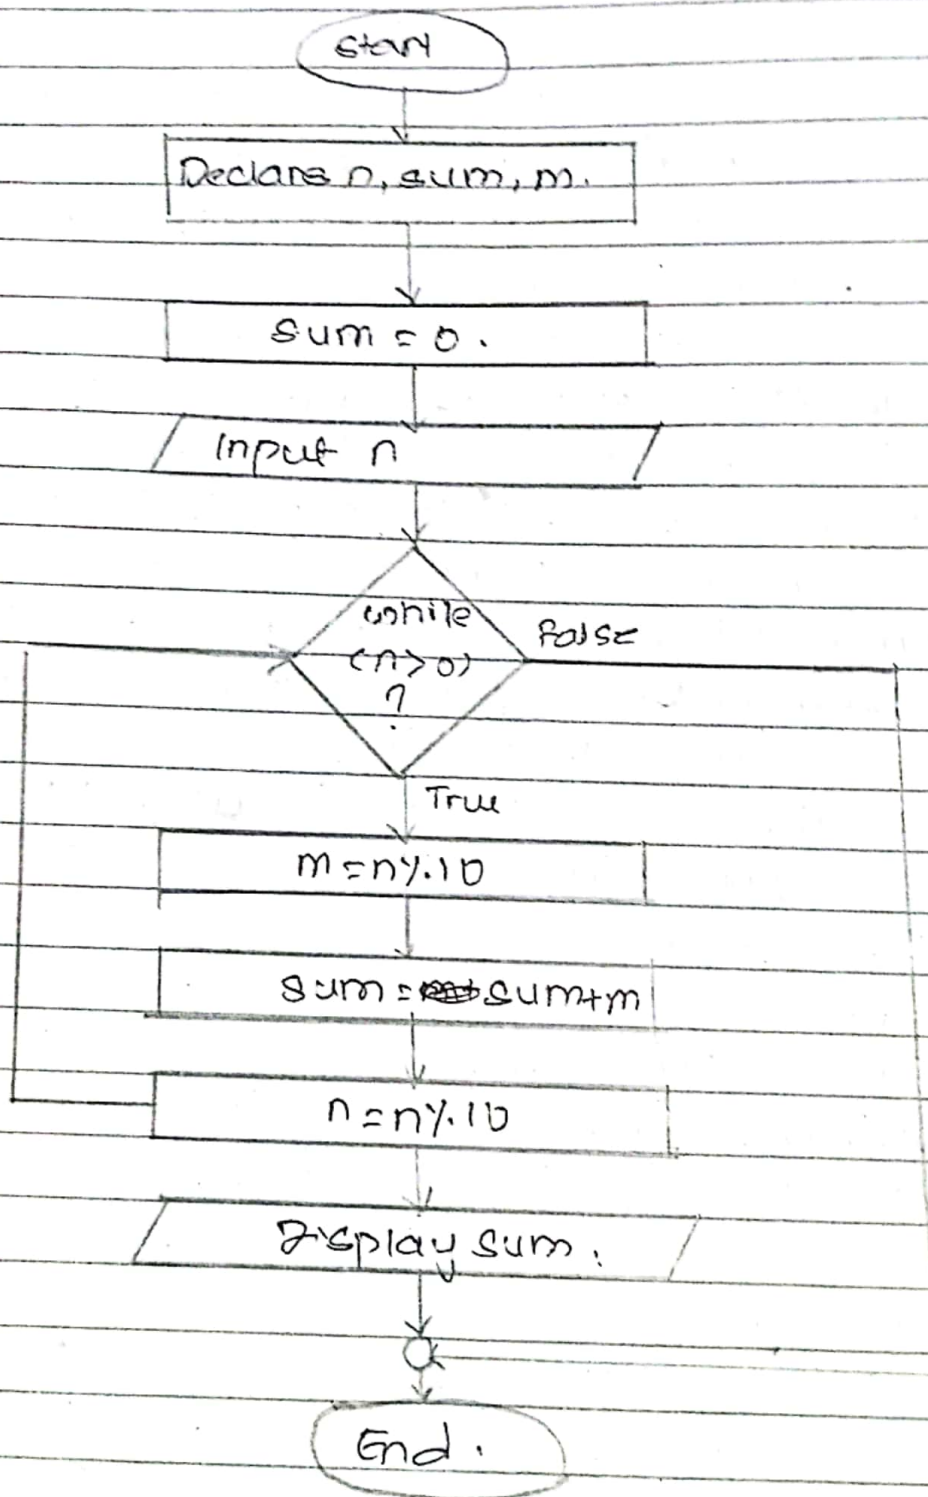 Start
Declare n, sum, m.
sum = 0.
Input n
while
(n>0)
?
False
True
m=n%10
sum = sum+m
n=n%10
Display sum.
End.